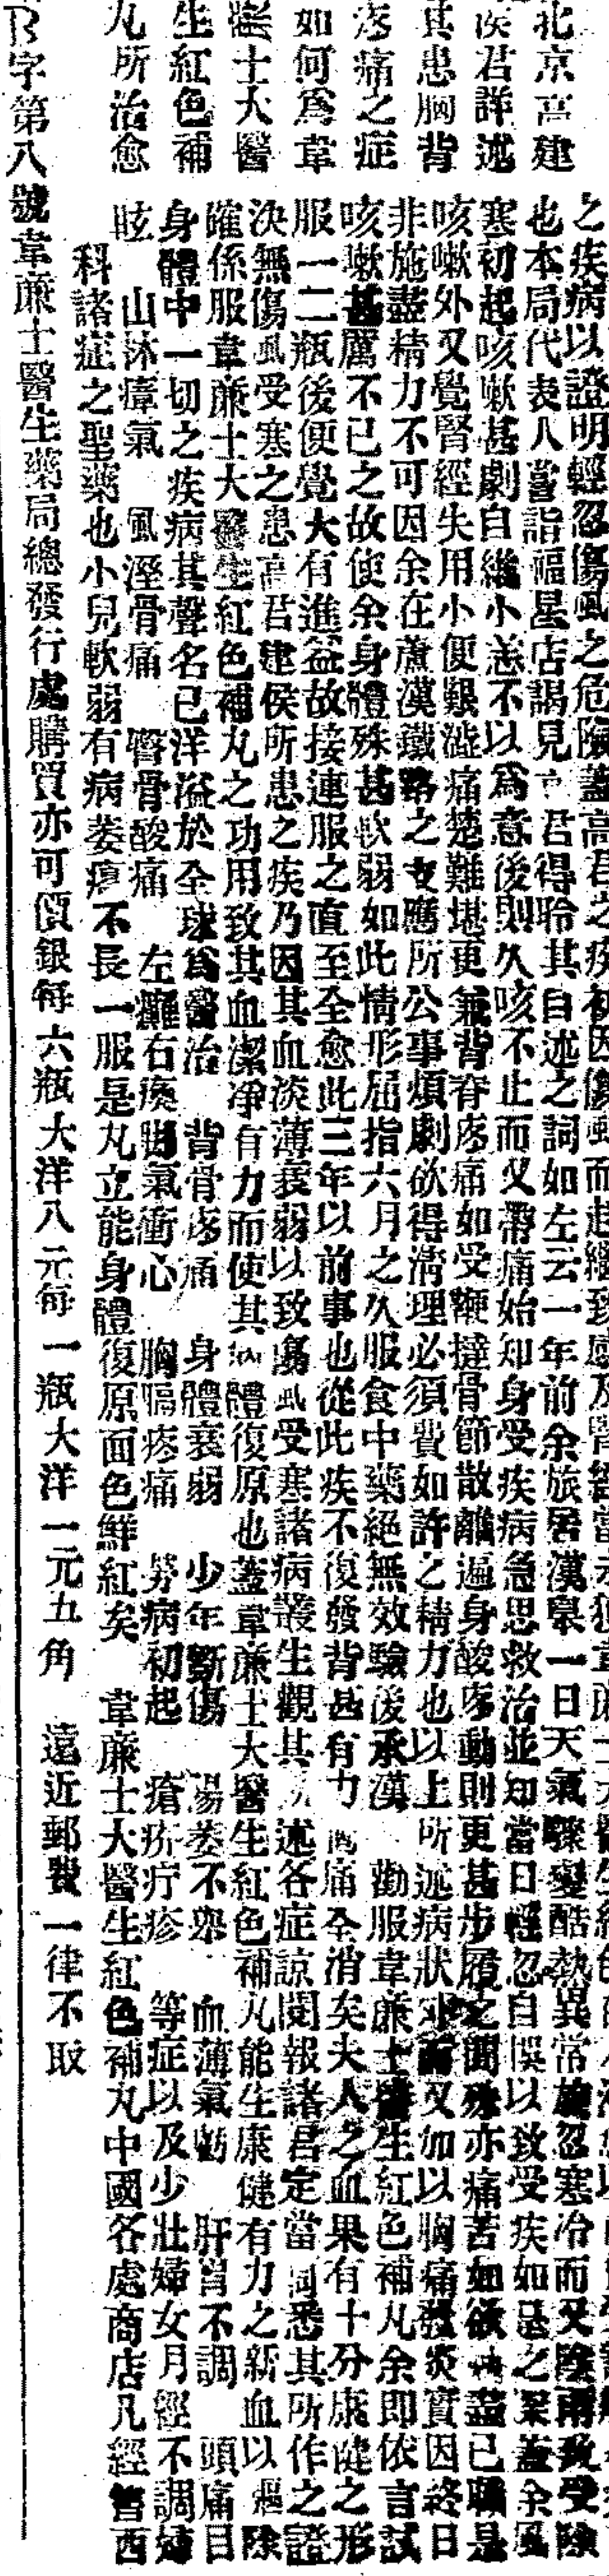 北京高建
侯君詳述
其患胸背
疼痛之症
如何為韋
廉士大醫
生紅色補
丸所治愈
之疾病以證明輕忽傷風之危險蓋高君之疾初因傷風而起繼致
也本局代表人嘗詣福星店謁見 君得聆其自述之詞如左云一年前余旅居漢皋一日天氣驟變酷熱異常旋忽寒冷而又陰雨致受陰
寒初起咳嗽甚劇自纖小恙不以為意後則久咳不止而又帶痛始知身受疾病急思救治並知當日輕忽自悞以致受疾如是之深蓋余風
咳嗽外又覺腎經失用小便艱澁痛楚難堪更兼背脊疼痛如受鞭撻骨節散離遍身酸疼動則更甚步履之間殊亦痛苦如欲 盡已職是
非施盡精力不可因余在蘆漢鐵路之支應所公事煩劇欲得清理必須費如許之精力也以上所述病狀 而又加以胸痛發炎實因終日
咳嗽甚厲不已之故使余身體殊甚軟弱如此情形屈指六月之久服食中藥絕無效驗後承漢 勸服韋廉士醫生紅色補丸余即依言試
服一二瓶後便覺大有進益故接連服之直至全愈此三年以前事也從此疾不復發背甚有力 痛全消矣夫人之血果有十分康健之形
決無傷風受寒之患高君建侯所患之疾乃因其血淡薄衰弱以致傷風受寒諸病叢生觀其 述各症諒閱報諸君定當 悉其所作之證
確係服韋廉士大醫生紅色補丸之功用致其血潔净有力而使其 體復原也蓋韋廉士大醫生紅色補丸能生康健有力之新血以驅除
身體中一切之疾病其聲名已洋溢於全球為醫治 背骨疼痛 身體衰弱 少年斲傷 陽萎不舉 血薄氣虧 肝胃不調 頭痛目
眩 山林瘴氣 風溼骨痛 臀骨酸痛 左癱右瘓脚氣衝心 胸膈疼痛 勞病初起 瘡疥疔疹 等症以及少壯婦女月經不調婦
科諸症之聖藥也小兒軟弱有病萎瘦不長一服是丸立能身體復原面色鮮紅矣 韋廉士大醫生紅色補丸中國各處商店凡經售西
字第八號韋廉士醫生藥局總發行處購買亦可價銀每六瓶大洋八元每一瓶大洋一元五角 遠近郵費一律不取